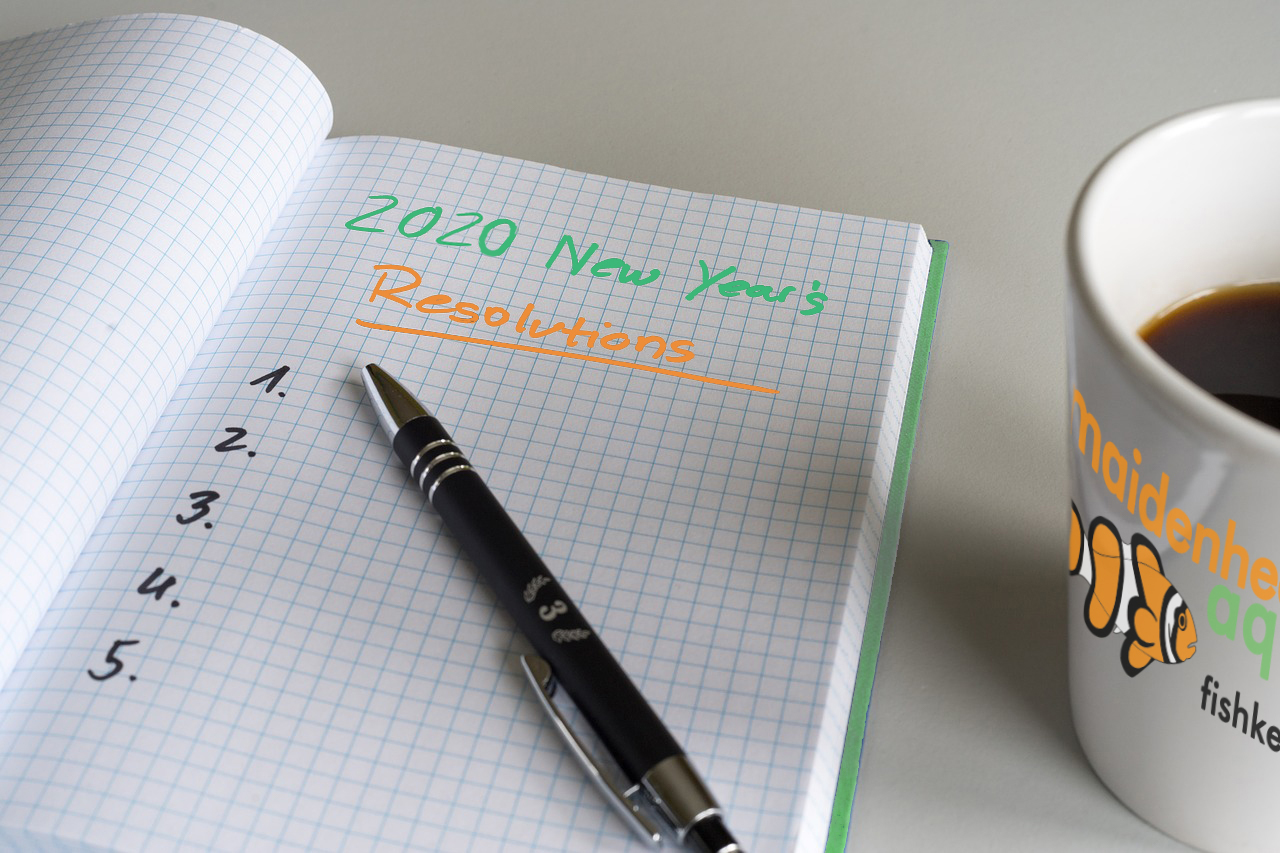 2020 New Year's
Resolutions
1.
2.
3.
4.
5.
3
maidenhe
aq
fishke